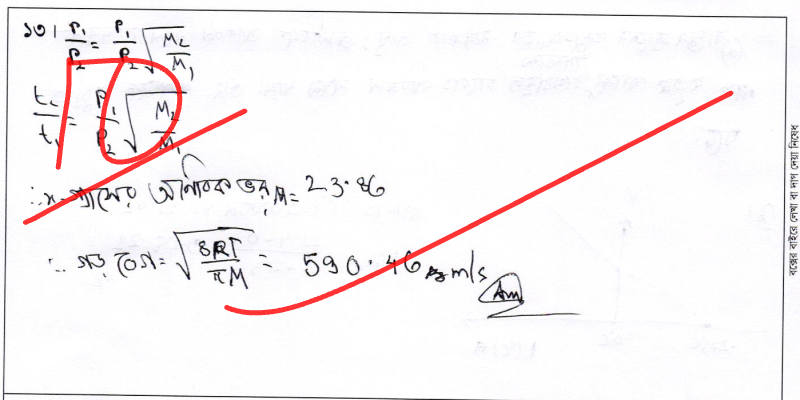 ১৩। P₁/P₂ = P₁/P₂ √(M₂/M₁)
t₂/t₁ = P₁/P₂ √(M₂/M₁)
∴ x-গ্যাসের আণবিক ভর, M = 23.86
∴ গড় বেগ = √(8RT/πM) = 590.46 m/s
Am
বক্সের বাইরে লেখা বা দাগ দেয়া নিষেধ